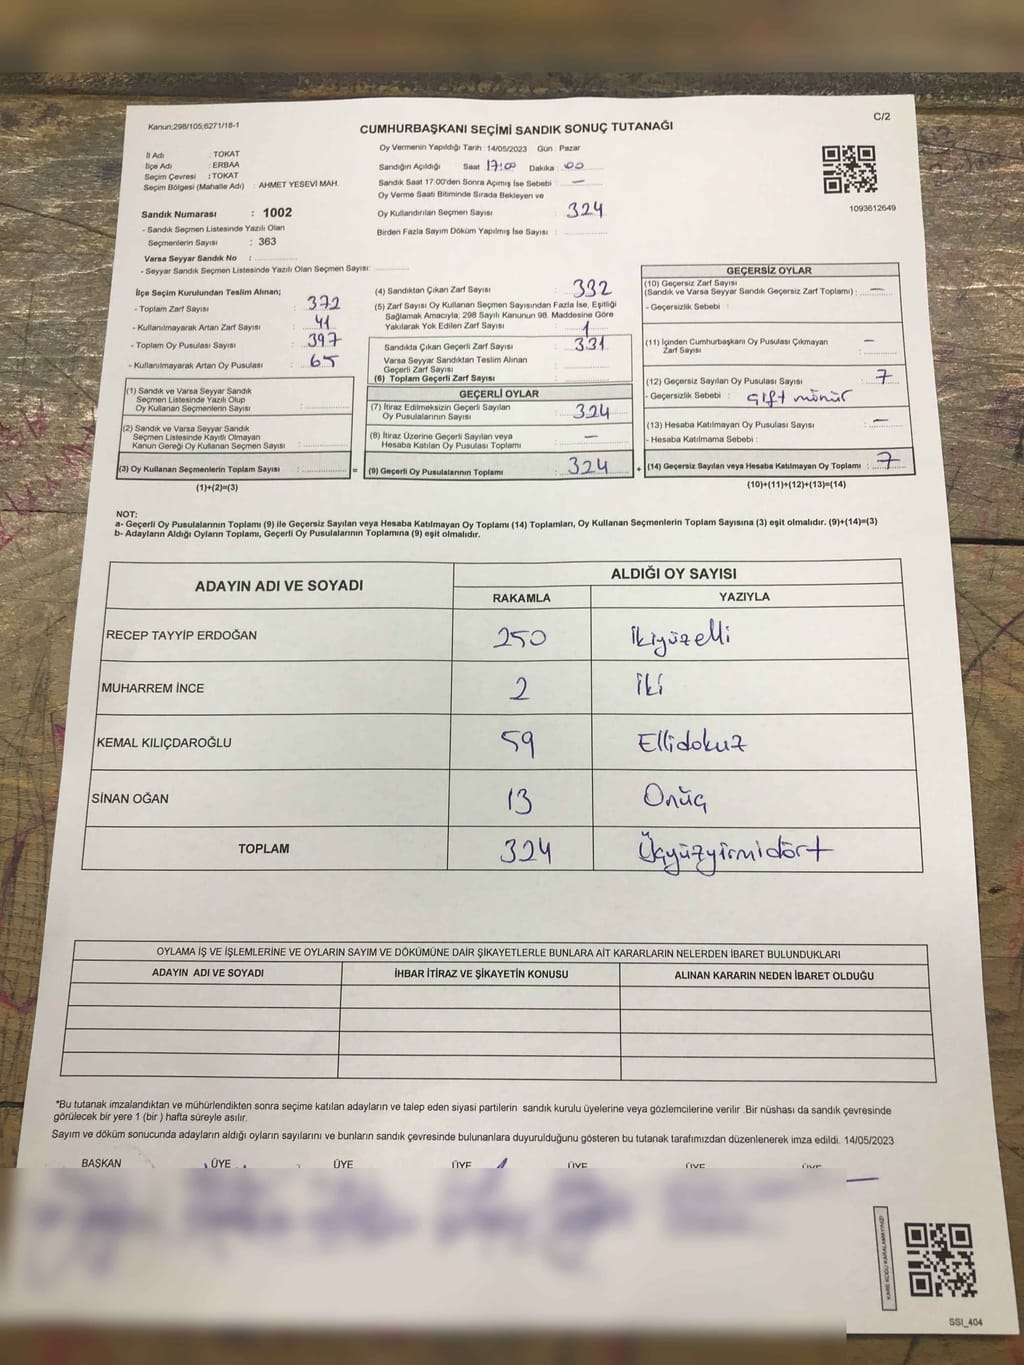 Kanun;298/105,6271/18-1
CUMHURBAŞKANI SEÇİMİ SANDIK SONUÇ TUTANAĞI
C/2
İl Adı : TOKAT
İlçe Adı : ERBAA
Seçim Çevresi : TOKAT
Seçim Bölgesi (Mahalle Adı) : AHMET YESEVİ MAH.
Sandık Numarası : 1002
- Sandık Seçmen Listesinde Yazılı Olan
Seçmenlerin Sayısı : 363
Varsa Seyyar Sandık No :
- Seyyar Sandık Seçmen Listesinde Yazılı Olan Seçmen Sayısı:
Oy Vermenin Yapıldığı Tarih : 14/05/2023 Gün : Pazar
Sandığın Açıldığı Saat 17:00 Dakika : 00
Sandık Saat 17:00'den Sonra Açımış İse Sebebi : —
Oy Verme Saati Bitiminde Sırada Bekleyen ve
Oy Kullandırılan Seçmen Sayısı : 324
Birden Fazla Sayım Döküm Yapılmış İse Sayısı :
1093612649
İlçe Seçim Kurulundan Teslim Alınan;
- Toplam Zarf Sayısı : 372
- Kullanılmayarak Artan Zarf Sayısı : 41
- Toplam Oy Pusulası Sayısı : 397
- Kullanılmayarak Artan Oy Pusulası : 65
(1) Sandık ve Varsa Seyyar Sandık
Seçmen Listesinde Yazılı Olup
Oy Kullanan Seçmenlerin Sayısı :
(2) Sandık ve Varsa Seyyar Sandık
Seçmen Listesinde Kayıtlı Olmayan
Kanun Gereği Oy Kullanan Seçmen Sayısı :
(3) Oy Kullanan Seçmenlerin Toplam Sayısı : =
(1)+(2)=(3)
(4) Sandıktan Çıkan Zarf Sayısı : 332
(5) Zarf Sayısı Oy Kullanan Seçmen Sayısından Fazla İse, Eşitliği
Sağlamak Amacıyla, 298 Sayılı Kanunun 98. Maddesine Göre
Yakılarak Yok Edilen Zarf Sayısı : 1
Sandıkta Çıkan Geçerli Zarf Sayısı : 331
Varsa Seyyar Sandıktan Teslim Alınan
Geçerli Zarf Sayısı :
(6) Toplam Geçerli Zarf Sayısı :
GEÇERLİ OYLAR
(7) İtiraz Edilmeksizin Geçerli Sayılan
Oy Pusulalarının Sayısı : 324
(8) İtiraz Üzerine Geçerli Sayılan veya
Hesaba Katılan Oy Pusulası Toplamı : —
(9) Geçerli Oy Pusulalarının Toplamı : 324 +
GEÇERSİZ OYLAR
(10) Geçersiz Zarf Sayısı
(Sandık ve Varsa Seyyar Sandık Geçersiz Zarf Toplamı) : —
- Geçersizlik Sebebi :
(11) İçinden Cumhurbaşkanı Oy Pusulası Çıkmayan —
Zarf Sayısı :
(12) Geçersiz Sayılan Oy Pusulası Sayısı : 7
- Geçersizlik Sebebi : çift mühür
(13) Hesaba Katılmayan Oy Pusulası Sayısı : —
- Hesaba Katılmama Sebebi :
(14) Geçersiz Sayılan veya Hesaba Katılmayan Oy Toplamı : 7
(10)+(11)+(12)+(13)=(14)
NOT:
a- Geçerli Oy Pusulalarının Toplamı (9) ile Geçersiz Sayılan veya Hesaba Katılmayan Oy Toplamı (14) Toplamları, Oy Kullanan Seçmenlerin Toplam Sayısına (3) eşit olmalıdır. (9)+(14)=(3)
b- Adayların Aldığı Oyların Toplamı, Geçerli Oy Pusulalarının Toplamına (9) eşit olmalıdır.
ADAYIN ADI VE SOYADI ALDIĞI OY SAYISI
RAKAMLA YAZIYLA
RECEP TAYYİP ERDOĞAN 250 İkiyüzelli
MUHARREM İNCE 2 İki
KEMAL KILIÇDAROĞLU 59 Ellidokuz
SİNAN OĞAN 13 Onüç
TOPLAM 324 Üçyüzyirmidört
OYLAMA İŞ VE İŞLEMLERİNE VE OYLARIN SAYIM VE DÖKÜMÜNE DAİR ŞİKAYETLERLE BUNLARA AİT KARARLARIN NELERDEN İBARET BULUNDUKLARI
ADAYIN ADI VE SOYADI İHBAR İTİRAZ VE ŞİKAYETİN KONUSU ALINAN KARARIN NEDEN İBARET OLDUĞU
*Bu tutanak imzalandıktan ve mühürlendikten sonra seçime katılan adayların ve talep eden siyasi partilerin sandık kurulu üyelerine veya gözlemcilerine verilir .Bir nüshası da sandık çevresinde
görülecek bir yere 1 (bir ) hafta süreyle asılır.
Sayım ve döküm sonucunda adayların aldığı oyların sayılarını ve bunların sandık çevresinde bulunanlara duyurulduğunu gösteren bu tutanak tarafımızdan düzenlenerek imza edildi. 14/05/2023
BAŞKAN ÜYE ÜYE ÜYE ÜYE ÜYE ÜYE
KARE KODU KARALAMAYINIZ!
SSI_404